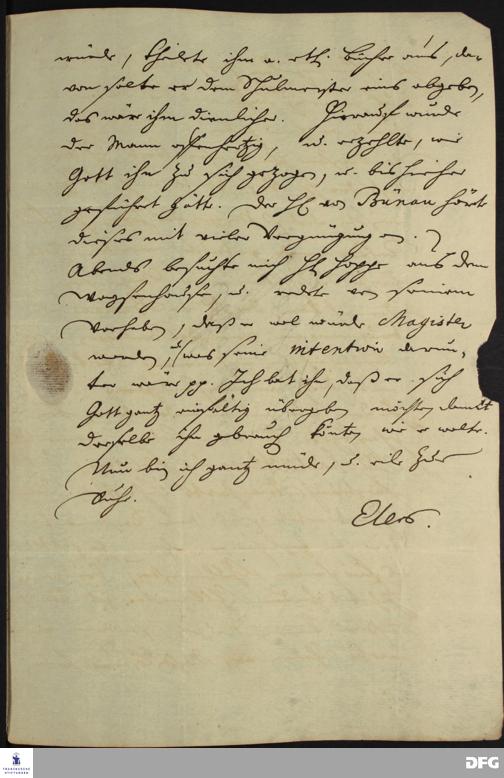 würde, theilete ihm u. etl. bücher aus, da-
von solte er dem Schulmeister eins abgeben,
das wär ihm dienlicher. Hierauf wurde
der Mann offenhertzig, u. erzehlte, wie
Gott ihn zu sich gezogen, u. bis hieher
geführet hätte. Der H. von Bünau hörte
dieses mit vielen Vergnügung an.
Abends besuchte mich H. Hoppe aus dem
Waysenhause, u. redete von seinem
Vorhaben, daß er wol würde Magister
werden, u. was seine intention darun-
ter wäre pp. Ich bat ihn, daß er sich
Gott gantz einfältig übergeben möchte, damit
derselbe ihn gebrauchen könte, wie er wolte.
Nun bin ich gantz müde, u. eile zur
Ruhe.
Elers.
FRANCKESCHE
STIFTUNGEN
DFG